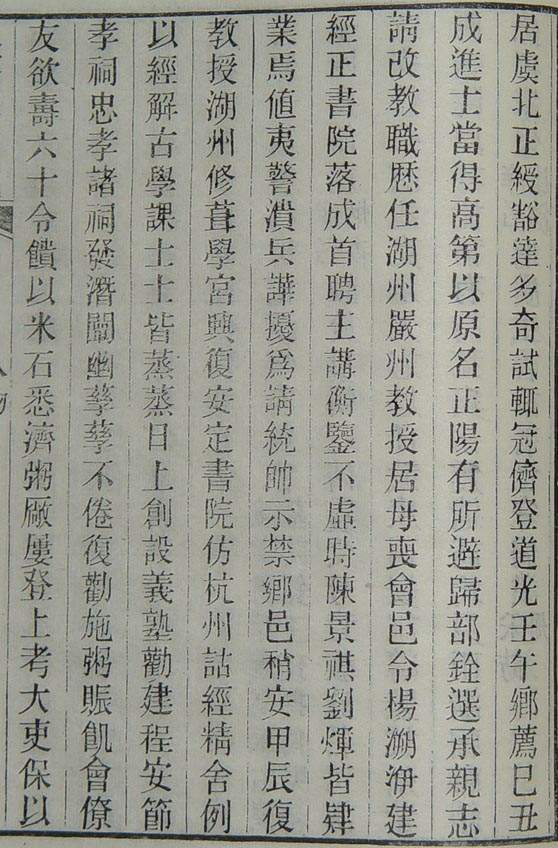 居虞北正綬豁達多奇試輒冠儕登道光壬午鄉薦巳丑
成進士當得高第以原名正陽有所避歸部銓選承親志
請改教職歷任湖州嚴州教授居母喪會邑令楊溯洢建
經正書院落成首聘主講衡鑒不虛時陳景祺劉煇皆肄
業焉值夷警潰兵譁擾爲請統帥示禁鄉邑稍安甲辰復
教授湖州修葺學宮興復安定書院仿杭州詁經精舍例
以經解古學課士士皆蒸蒸日上創設義塾勸建程安節
孝祠忠孝諸祠發潛闡幽孳孳不倦復勸施粥賑飢會僚
友欲壽六十令饋以米石悉濟粥廠屢登上考大吏保以